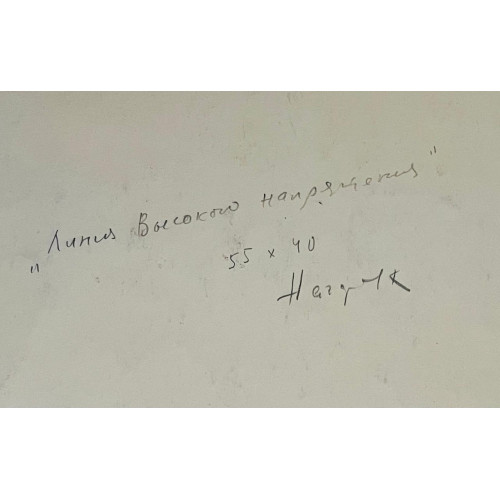 „Линия Высокого напряжения"
55 x 40